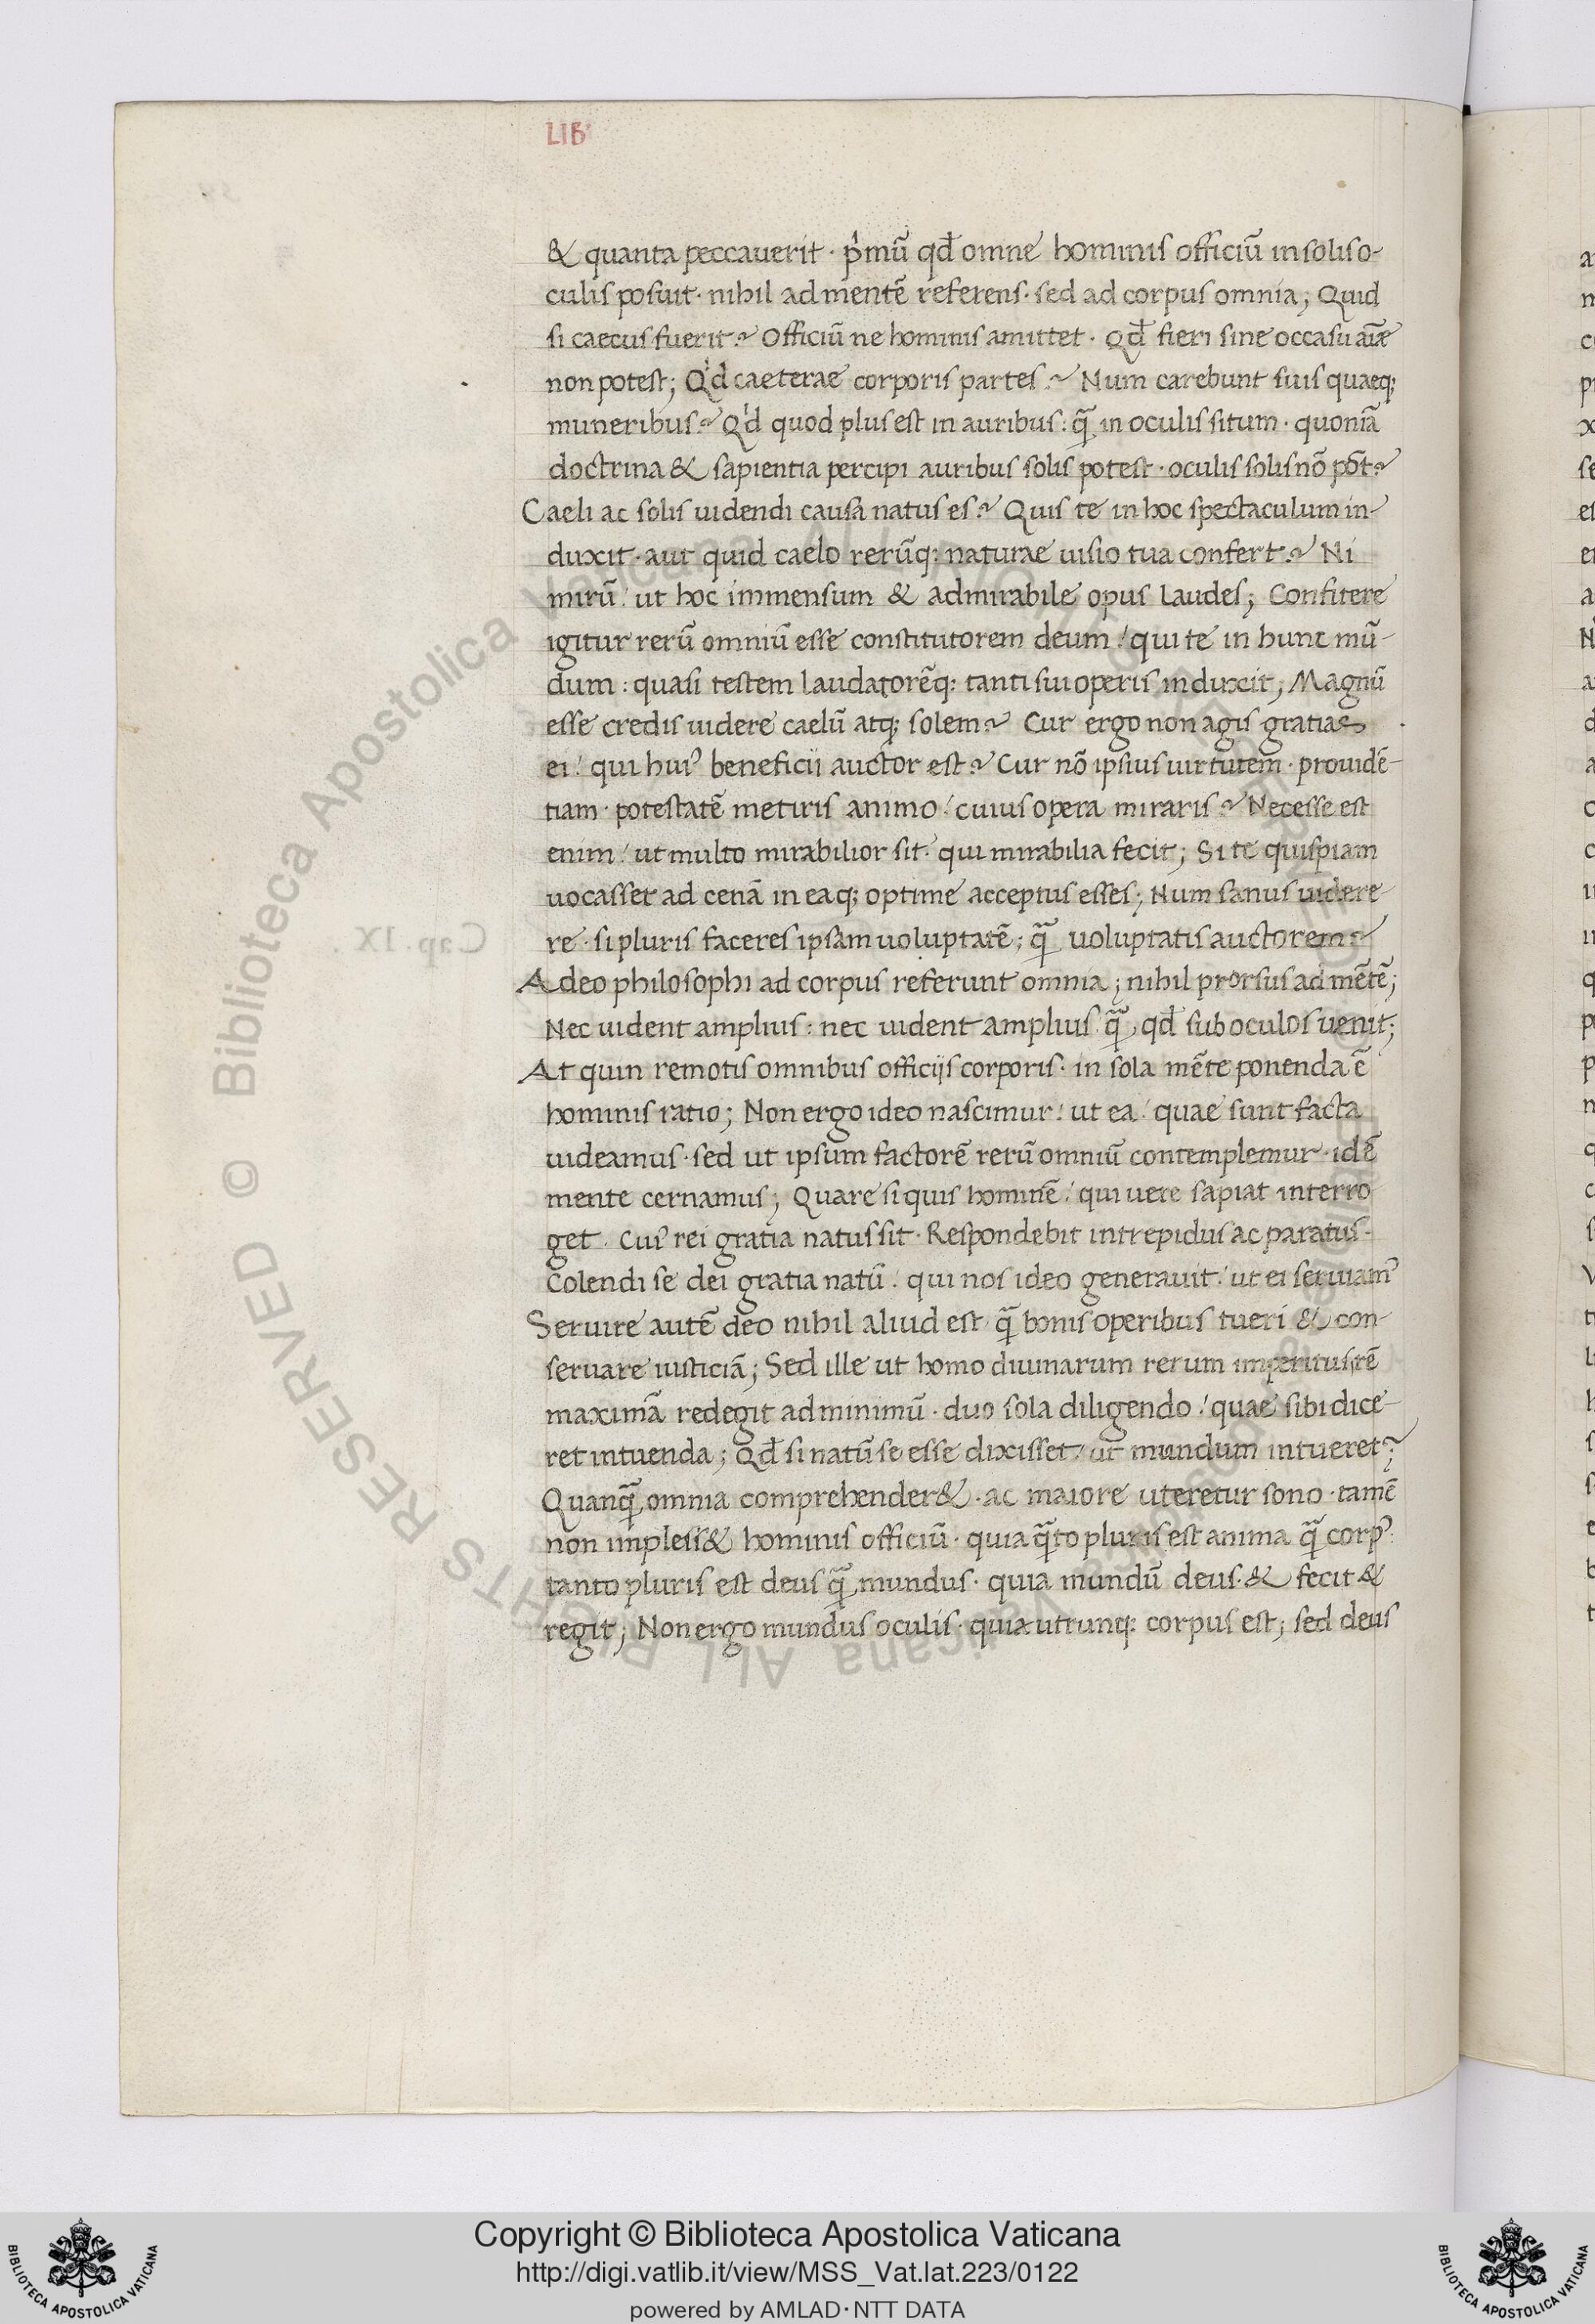 LIB'
& quanta peccauerit · p'mũ qđ omne hominis officiũ in solis o-
culis posuit · nihil ad mentẽ referens · sed ad corpus omnia; Quid
si caecus fuerit? Officiũ ne hominis amittet · Qđ fieri sine occasu aĩae
non potest; Q'd caeterae corporis partes? Num carebunt suis quaeq;
muneribus? Q'd quod plus est in auribus: q̃ in oculis situm · quoniã
doctrina & sapientia percipi auribus solis potest · oculis solis nõ põt?
Caeli ac solis uidendi causa natus es? Quis te in hoc spectaculum in-
duxit · aut quid caelo rerũq; naturae uisio tua confert? Ni
mirũ / ut hoc immensum & admirabile opus laudes; Confitere
igitur rerũ omniũ esse constitutorem deum / qui te in hunc mũ-
dum : quasi testem laudatorẽq; tanti sui operis induxit; Magnũ
esse credis uidere caelũ atq; solem? Cur ergo non agis gratias
ei / qui hui' beneficii auctor est? Cur nõ ipsius uirtutem · prouidẽ-
tiam · potestatẽ metiris animo / cuius opera miraris? Necesse est
enim / ut multo mirabilior sit · qui mirabilia fecit; Si te quispiam
uocasset ad cenã in eaq; optime acceptus esses; Num sanus uidere
re · si pluris faceres ipsam uoluptatẽ; q̃ uoluptatis auctorem?
Adeo philosophi ad corpus referunt omnia; nihil prorsus ad mẽtẽ;
Nec uident amplius : nec uident amplius q̃ qđ sub oculos uenit;
At quin remotis omnibus officijs corporis · in sola mẽte ponenda ẽ
hominis ratio; Non ergo ideo nascimur / ut ea / quae sunt facta
uideamus · sed ut ipsum factorẽ rerũ omniũ contemplemur · idẽ
mente cernamus; Quare si quis hominẽ / qui uere sapiat interro
get · Cui' rei gratia natus sit · Respondebit intrepidus ac paratus ·
Colendi se dei gratia natũ / qui nos ideo generauit / ut ei seruiam'
Seruire autẽ deo nihil aliud est q̃ bonis operibus tueri & con-
seruare iusticiã; Sed ille ut homo diuinarum rerum imperitus, rẽ
maximã redegit ad minimũ · duo sola diligendo / quae sibi dice-
ret intuenda; Qđ si natũ se esse dixisset / ut mundum intueret';
Quanq̃ omnia comprehender& · ac maiore uteretur sono · tamẽ
non impless& hominis officiũ · quia q̃to pluris est anima q̃ corp'
tanto pluris est deus q̃ mundus · quia mundũ deus · & fecit &
regit; Non ergo mundus oculis · quia utrunq; corpus est; sed deus
Copyright © Biblioteca Apostolica Vaticana
http://digi.vatlib.it/view/MSS_Vat.lat.223/0122
powered by AMLAD·NTT DATA